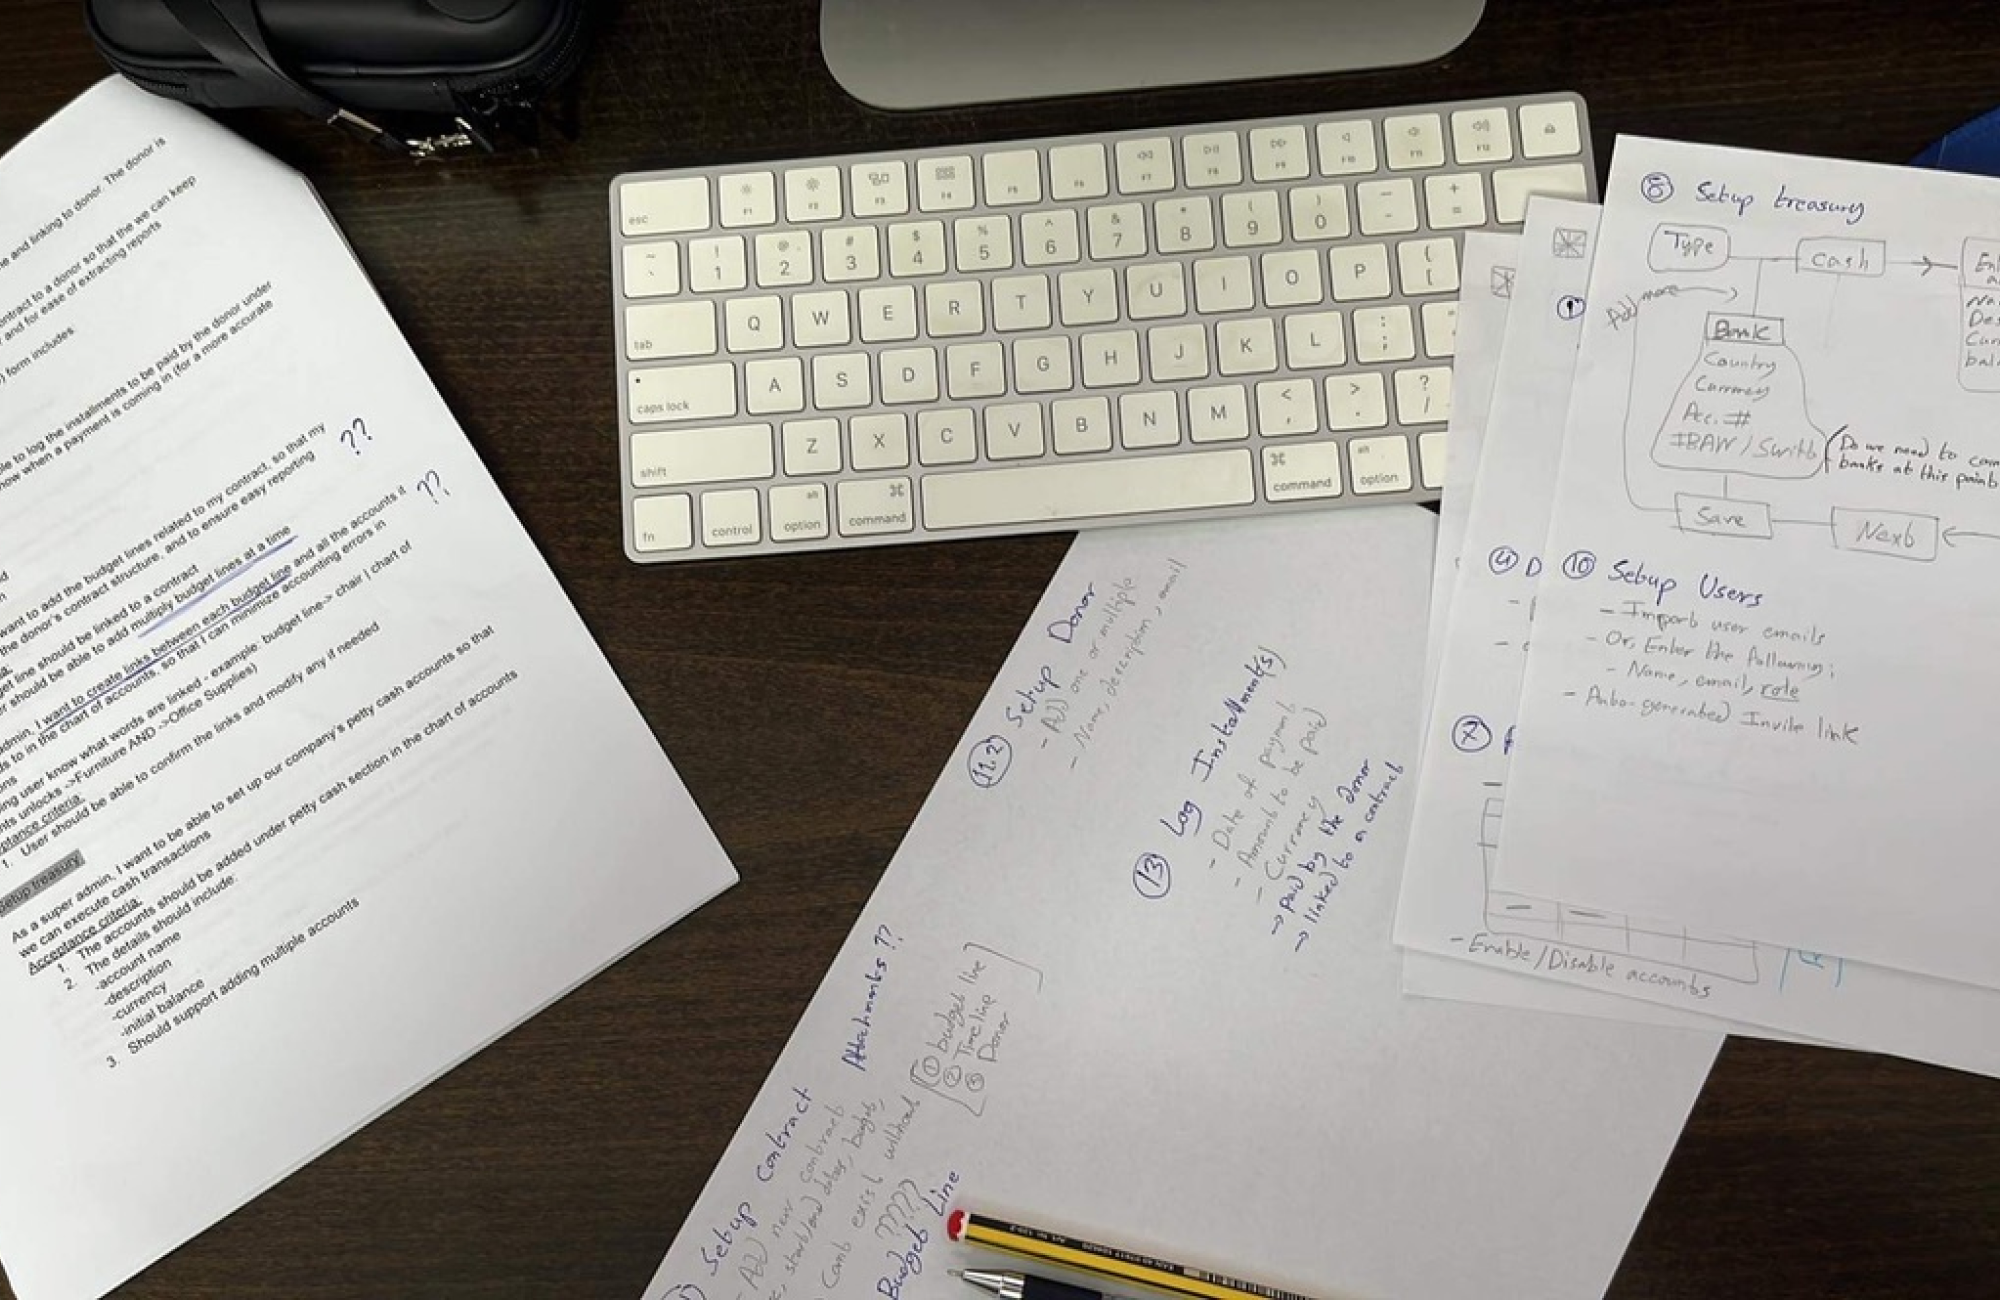 e and linking to donor. The donor is
ontract to a donor so that the we can keep
and for ease of extracting reports
) form includes
le to log the installments to be paid by the donor under
now when a payment is coming in (for a more accurate
want to add the budget lines related to my contract, so that my
the donor's contract structure, and to ensure easy reporting
??
get line should be linked to a contract
er should be able to add multiply budget lines at a time
admin, I want to create links between each budget line and all the accounts it
ds to in the chart of accounts, so that I can minimize accounting errors in
??
ons
ing user know what words are linked - example: budget line-> chair | chart of
nts unlocks ->Furniture AND ->Office Supplies)
ptance criteria:
1. User should be able to confirm the links and modify any if needed
Setup treasury
As a super admin, I want to be able to set up our company's petty cash accounts so that
we can execute cash transactions
Acceptance criteria:
1. The accounts should be added under petty cash section in the chart of accounts
2. The details should include:
-account name
-description
-currency
-initial balance
3. Should support adding multiple accounts
esc F1 F2 F3 F4 F5 F6 F7 F8 F9 F10 F11 F12
~ ` ! 1 @ 2 # 3 $ 4 % 5 ^ 6 & 7 * 8 ( 9 ) 0 _ - + =
tab Q W E R T Y U I O P { [
caps lock A S D F G H J K L : ; "
shift Z X C V B N M < , > . ? /
fn control alt option ⌘ command ⌘ command alt option
11.2 Setup Donor
- Add one or multiple
- Name, description, email
13 Log Installment(s)
- Date of payment
- Amount to be paid
- Currency
→ paid by the donor
→ linked to a contract
Setup contract
Attachments ??
- Add new contract
start/end dates, budget,
Can't exist without
① budget line
② Timeline
③ Donor
?????
Budget Line
8 Setup treasury
Type
Cash
Add more
Bank
Country
Currency
Acc. #
IBAN / Swift
(Do we need to
banks at this point
Save
Next
10 Setup Users
- Import user emails
- Or, Enter the following:
- Name, email, role
- Auto-generated Invite link
4 D
7
- Enable/Disable accounts